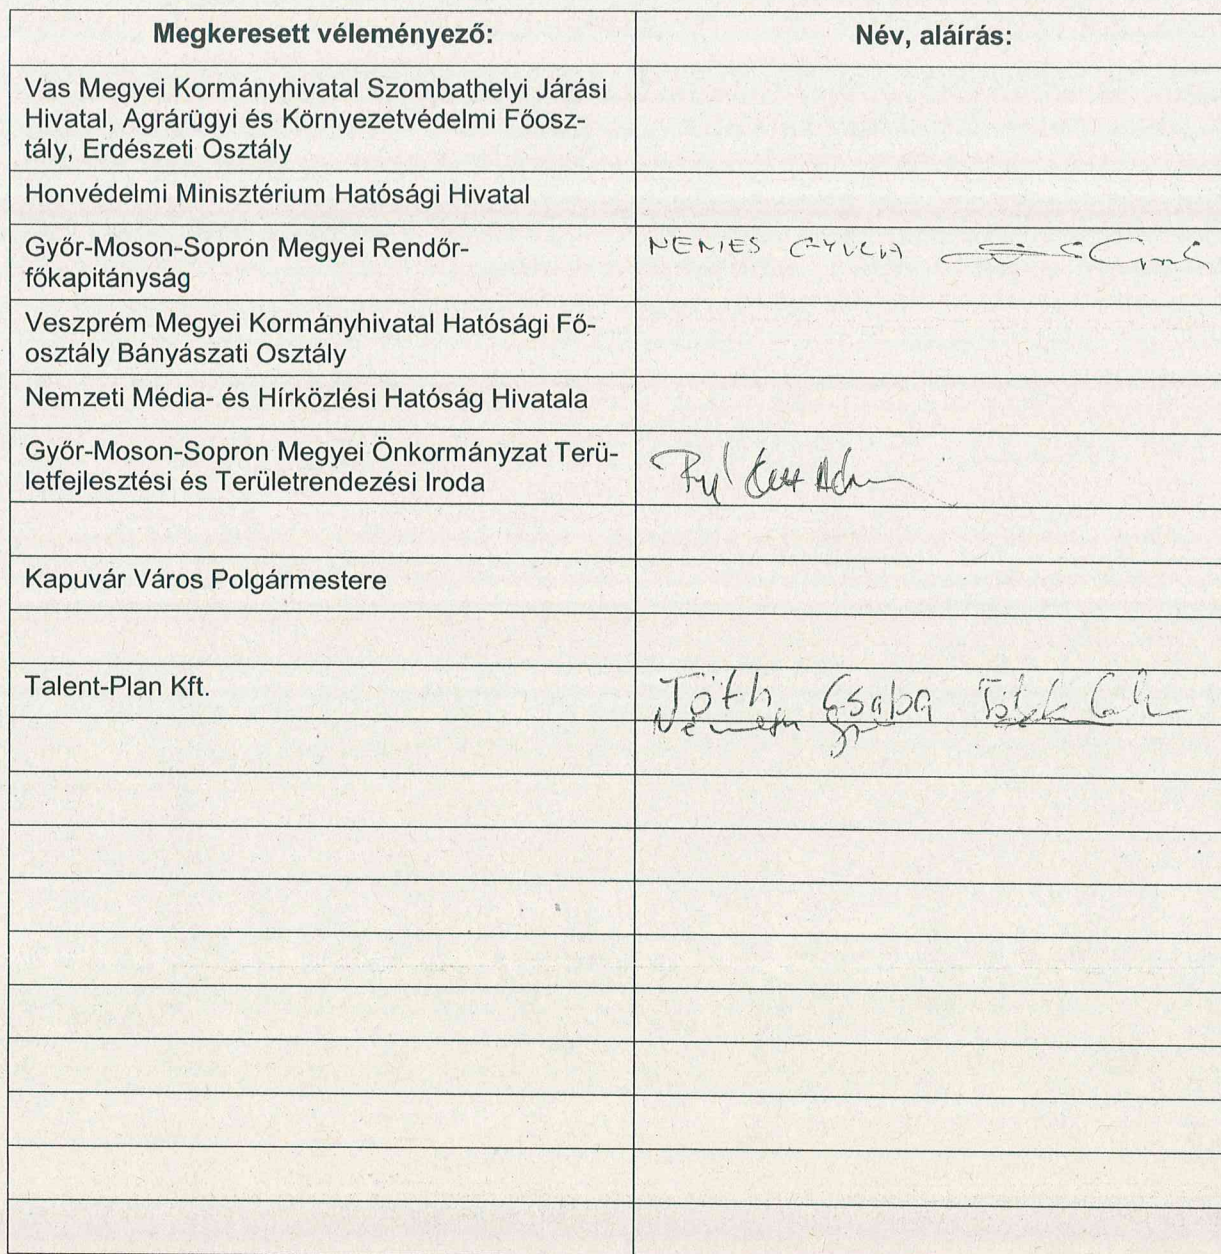 Megkeresett véleményező:
Név, aláírás:
Vas Megyei Kormányhivatal Szombathelyi Járási
Hivatal, Agrárügyi és Környezetvédelmi Főosz-
tály, Erdészeti Osztály
Honvédelmi Minisztérium Hatósági Hivatal
Győr-Moson-Sopron Megyei Rendőr-
főkapitányság
NEMES
Veszprém Megyei Kormányhivatal Hatósági Fő-
osztály Bányászati Osztály
Nemzeti Média- és Hírközlési Hatóság Hivatala
Győr-Moson-Sopron Megyei Önkormányzat Terü-
letfejlesztési és Területrendezési Iroda
Kapuvár Város Polgármestere
Talent-Plan Kft.
Tóth Csaba